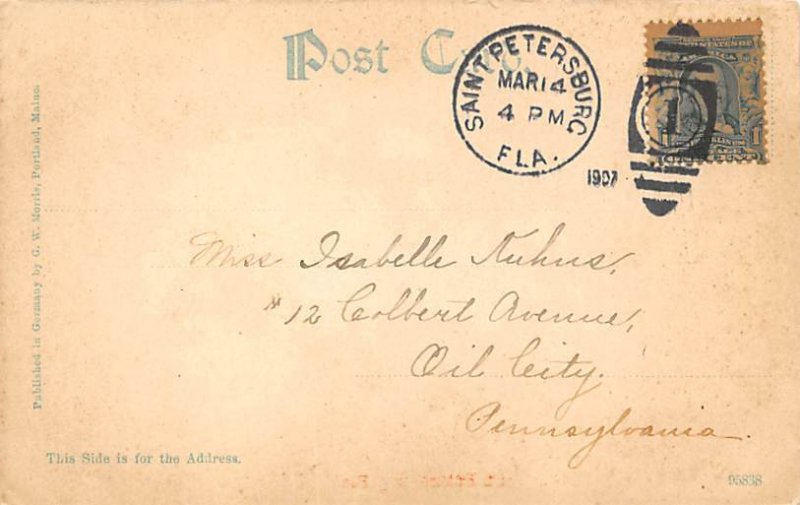 Post Card.
SAINT PETERSBURG
MAR 14
4 PM
FLA.
1907
1
Miss Isabelle Kuhns,
#12 Colbert Avenue,
Oil City.
Pennsylvania.
Published in Germany by G. W. Morris, Portland, Maine.
This Side is for the Address.
95838